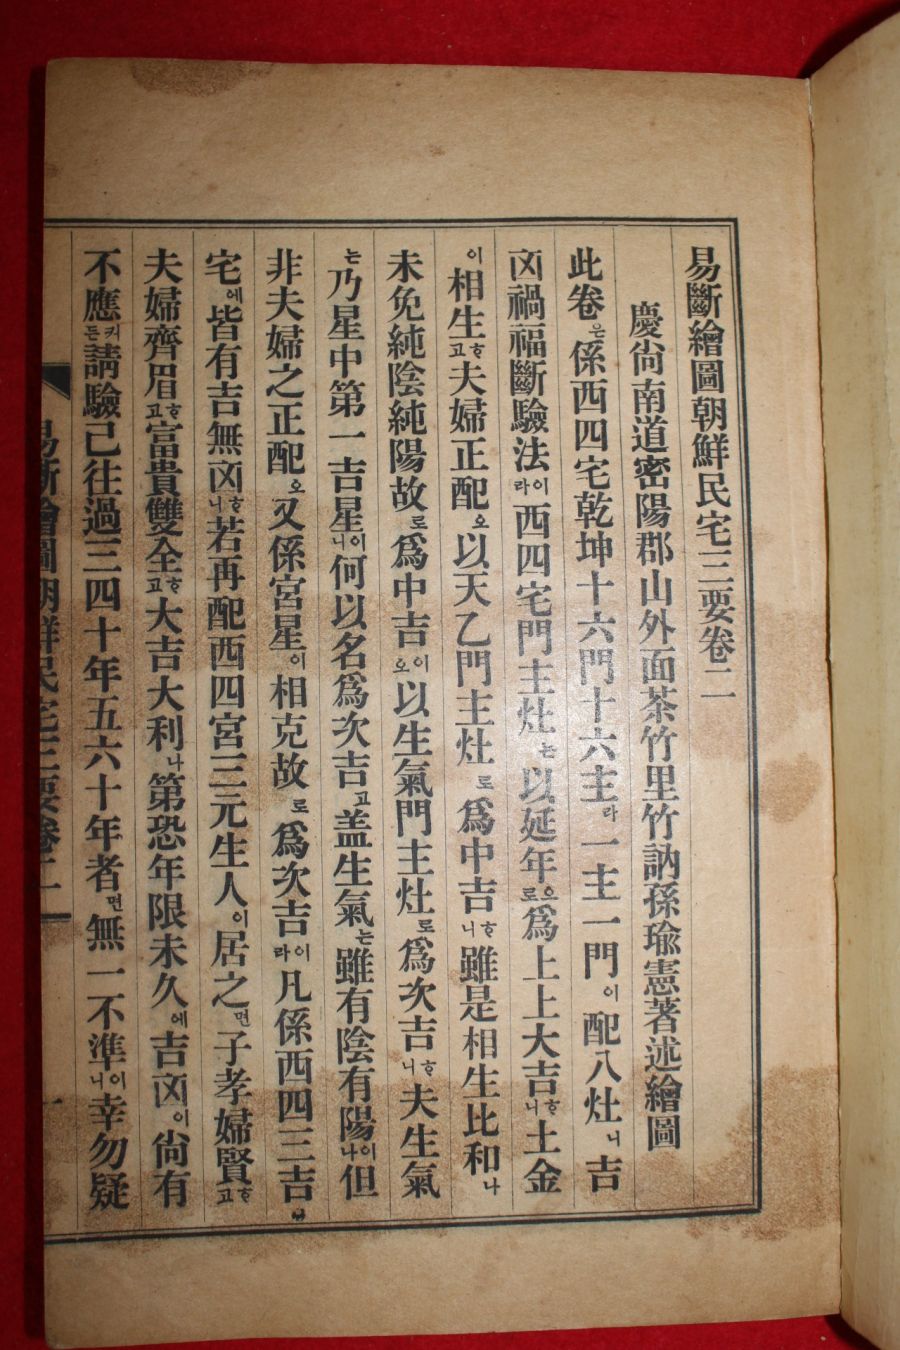 易斷繪圖朝鮮民宅三要卷二
慶尙南道密陽郡山外面茶竹里竹訥孫瑜憲著述繪圖
此卷은係西四宅乾坤十六門十六主라一主一門이配八灶니吉
凶禍福斷驗法이라西四宅門主灶는以延年으로爲上上大吉ᄒᆞ니土金
이相生ᄒᆞ고夫婦正配오以天乙門主灶로爲中吉ᄒᆞ니雖是相生比和나
未免純陰純陽故로爲中吉이오以生氣門主灶로爲次吉ᄒᆞ니夫生氣
는乃星中第一吉星이니何以名爲次吉고盖生氣는雖有陰有陽이나但
非夫婦之正配오又係宮星이相克故로爲次吉이라凡係西四三吉
宅에皆有吉無凶ᄒᆞ니若再配西四宮三元生人이居之면子孝婦賢ᄒᆞ고
夫婦齊眉ᄒᆞ고富貴雙全ᄒᆞ고大吉大利나第恐年限未久에吉凶이尙有
不應커든請驗已往過三四十年五六十年者면無一不準이니幸勿疑
易斷繪圖朝鮮民宅三要卷二 一